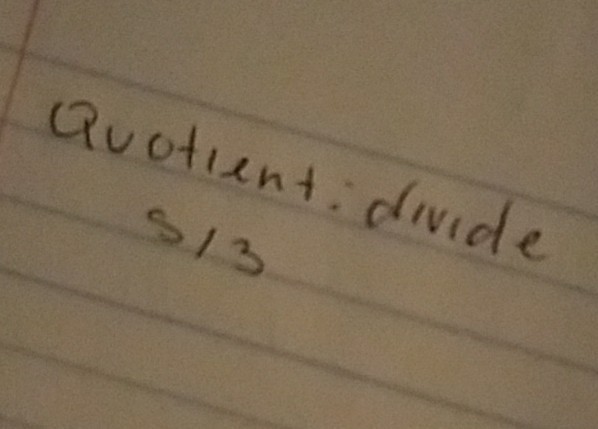 Quotient: divide
S/3